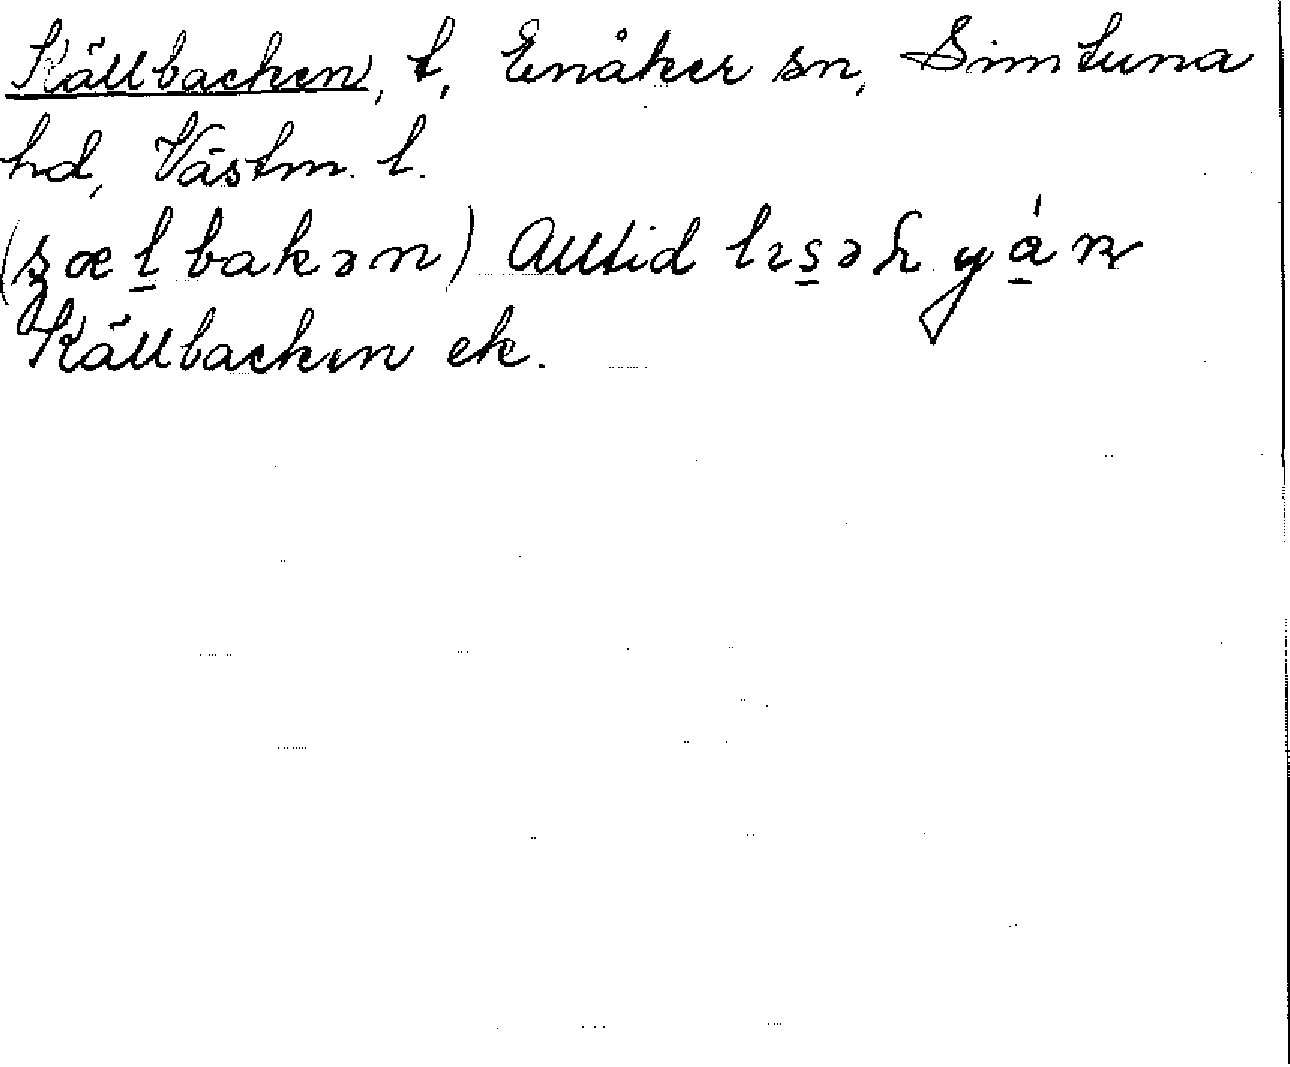 Källbacken, t, Enåker sn, Simtuna
hd, Västm. l.
(ʂœḻbakən) Alltid
Källbacken ek.